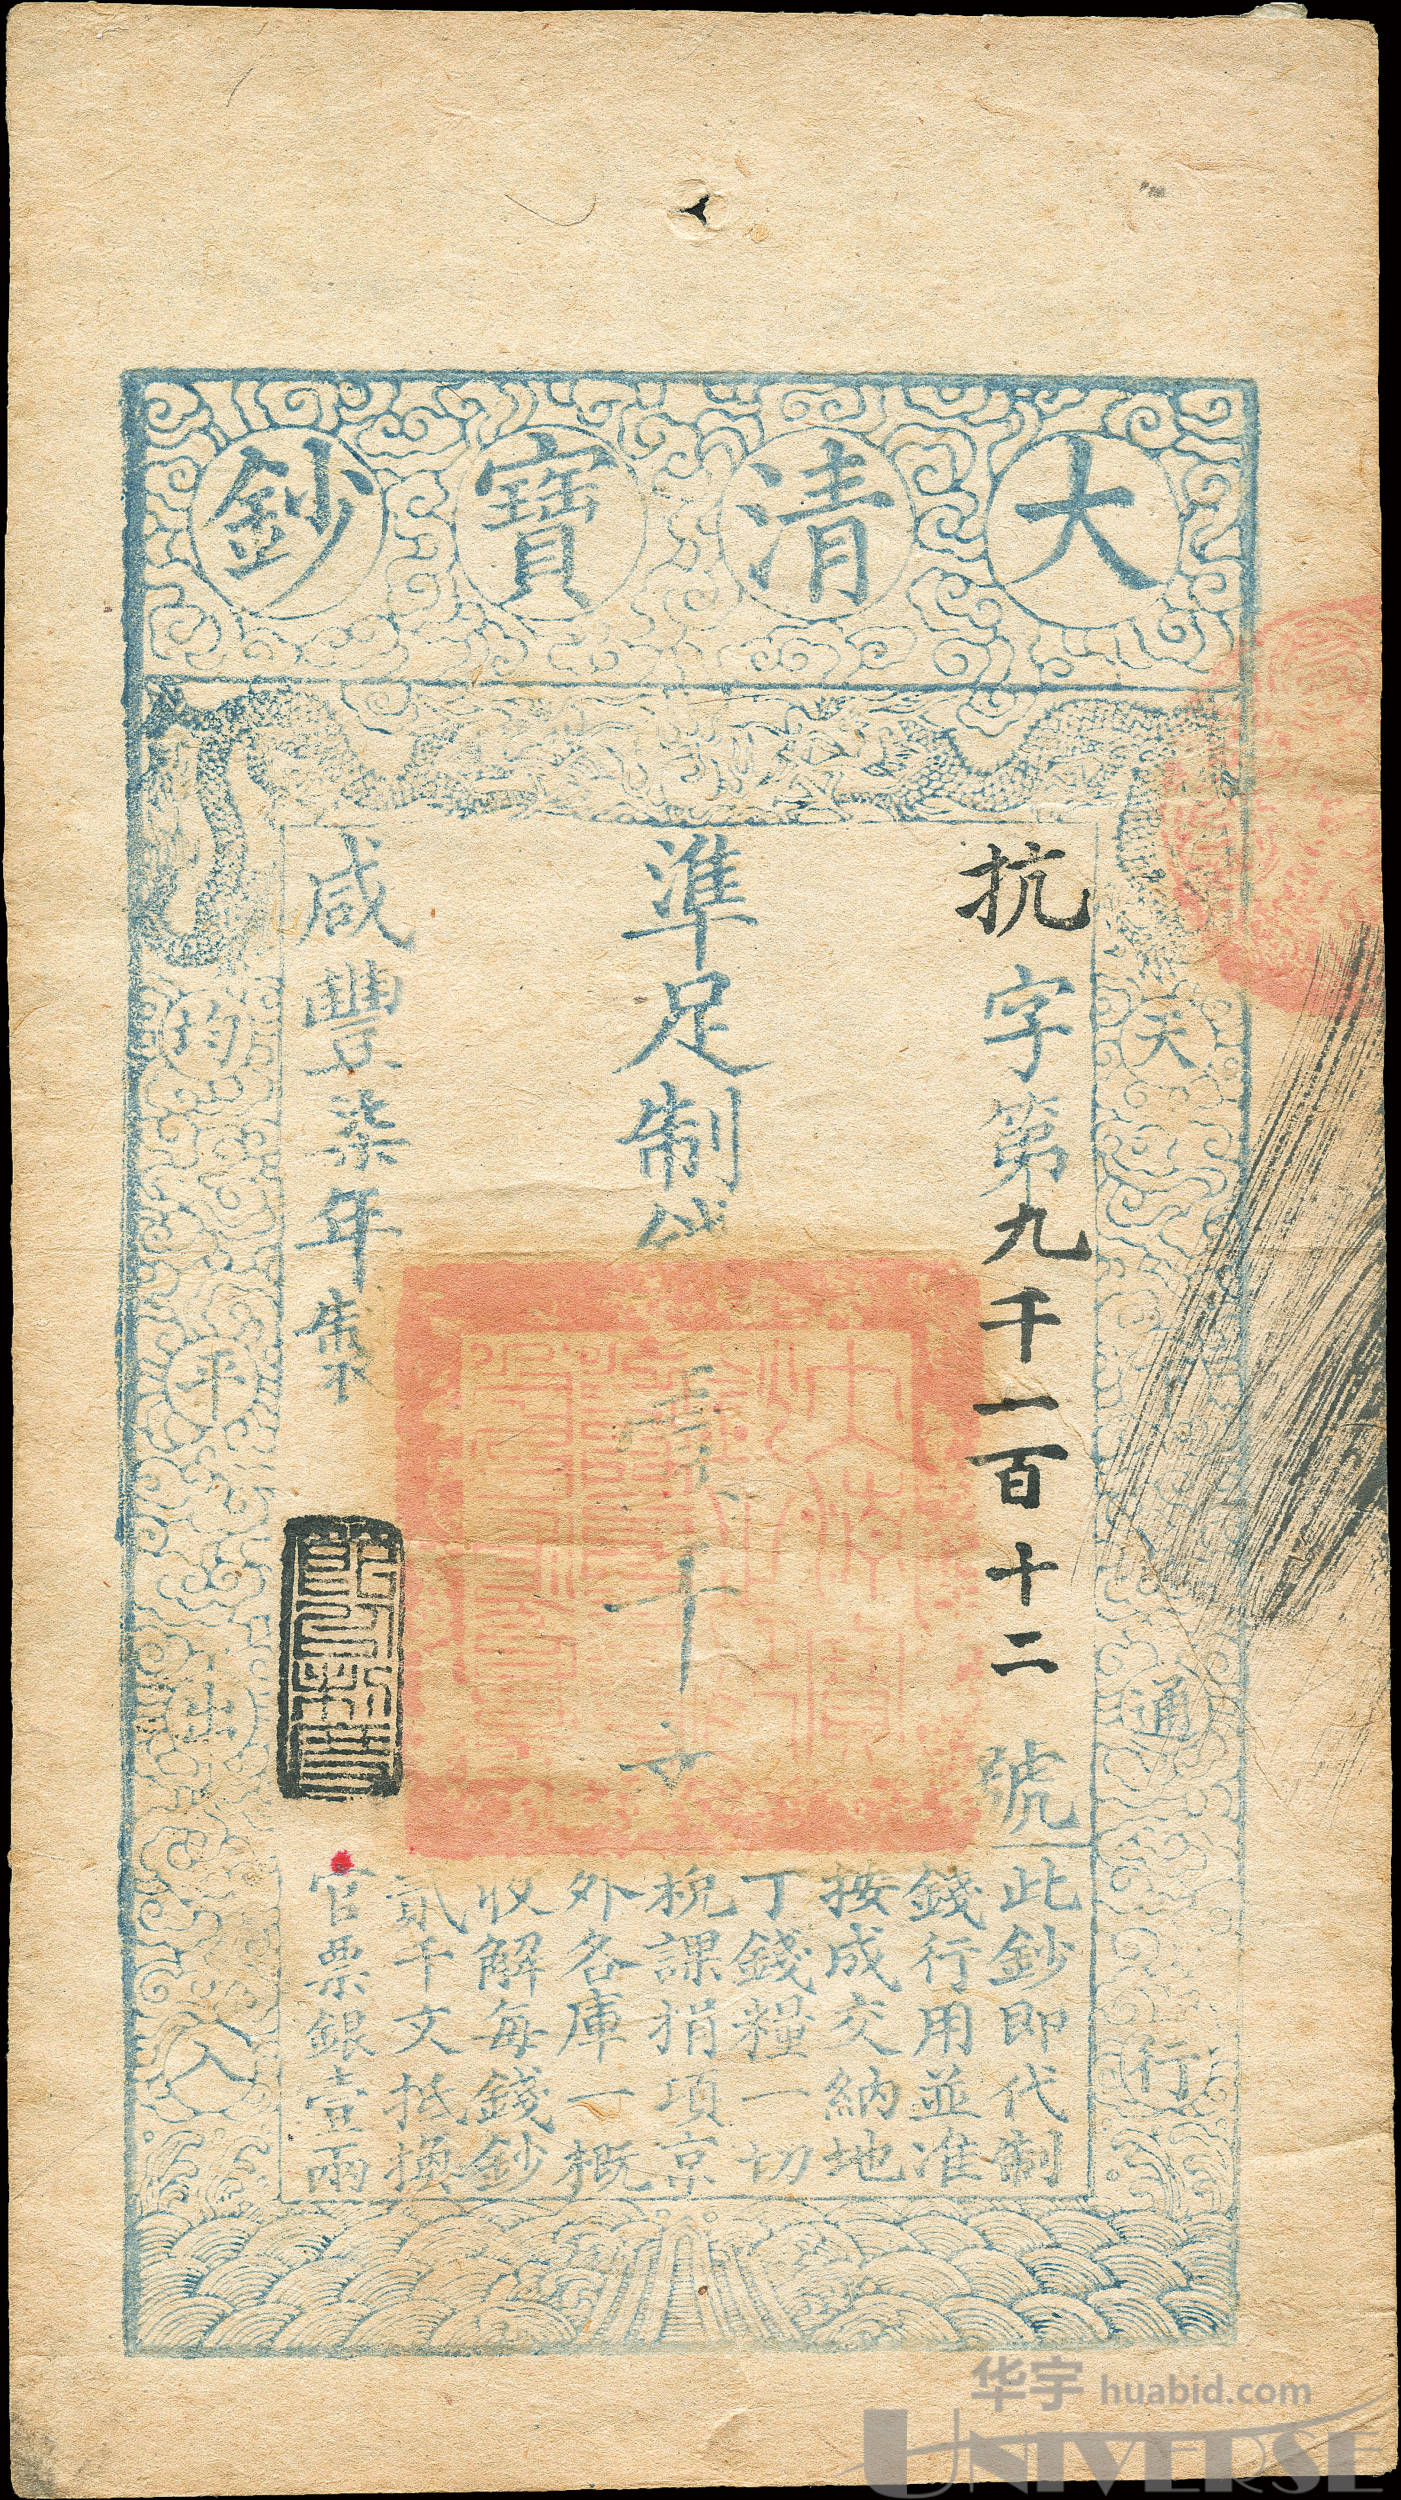 大清寶鈔
天下通行
均平出入
抗字第九千一百十二號
準足制錢壹千文
咸豐柒年製
此鈔即代制
錢行用並准
按成交納地
丁錢糧一切
稅課捐項京
外各庫一概
收解每錢鈔
貳千文抵換
官票銀壹兩
华宇 huabid.com
UNIVERSE